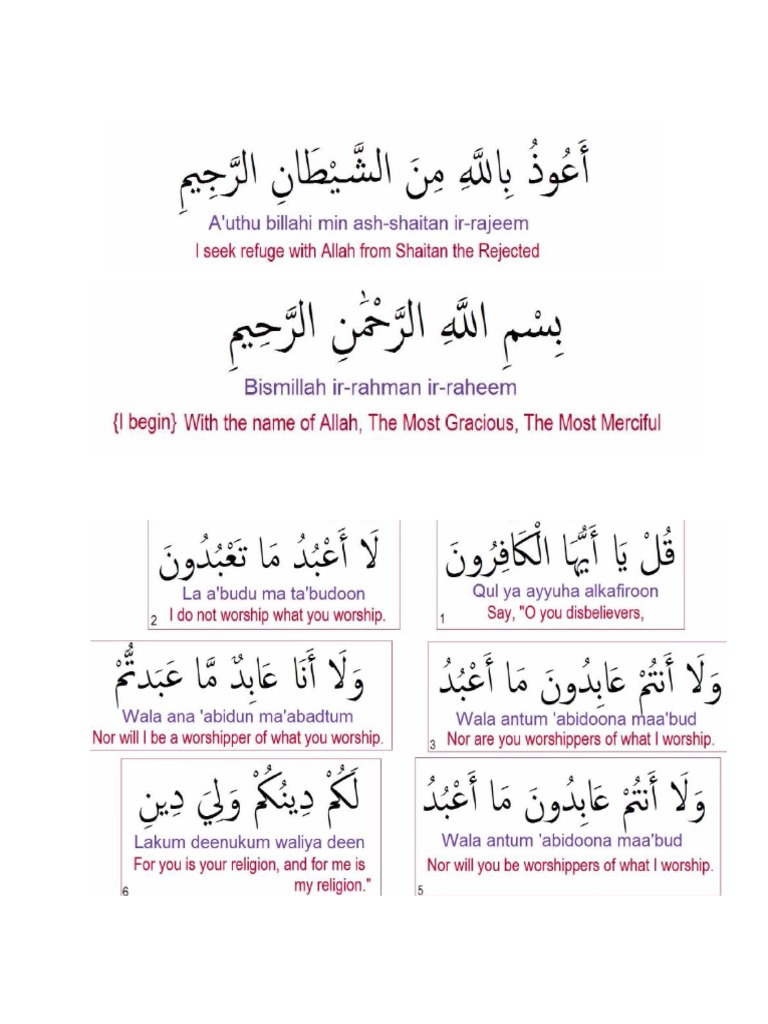 أَعُوذُ بِاللَّهِ مِنَ الشَّيْطَانِ الرَّجِيمِ
A'uthu billahi min ash-shaitan ir-rajeem
I seek refuge with Allah from Shaitan the Rejected
بِسْمِ اللَّهِ الرَّحْمَٰنِ الرَّحِيمِ
Bismillah ir-rahman ir-raheem
{I begin} With the name of Allah, The Most Gracious, The Most Merciful
قُلْ يَا أَيُّهَا الْكَافِرُونَ
Qul ya ayyuha alkafiroon
Say, "O you disbelievers,
1
لَا أَعْبُدُ مَا تَعْبُدُونَ
La a'budu ma ta'budoon
I do not worship what you worship.
2
وَلَا أَنتُمْ عَابِدُونَ مَا أَعْبُدُ
Wala antum 'abidoona maa'bud
Nor are you worshippers of what I worship.
3
وَلَا أَنَا عَابِدٌ مَّا عَبَدتُّمْ
Wala ana 'abidun ma'abadtum
Nor will I be a worshipper of what you worship.
وَلَا أَنتُمْ عَابِدُونَ مَا أَعْبُدُ
Wala antum 'abidoona maa'bud
Nor will you be worshippers of what I worship.
5
لَكُمْ دِينُكُمْ وَلِيَ دِينِ
Lakum deenukum waliya deen
For you is your religion, and for me is
my religion."
6